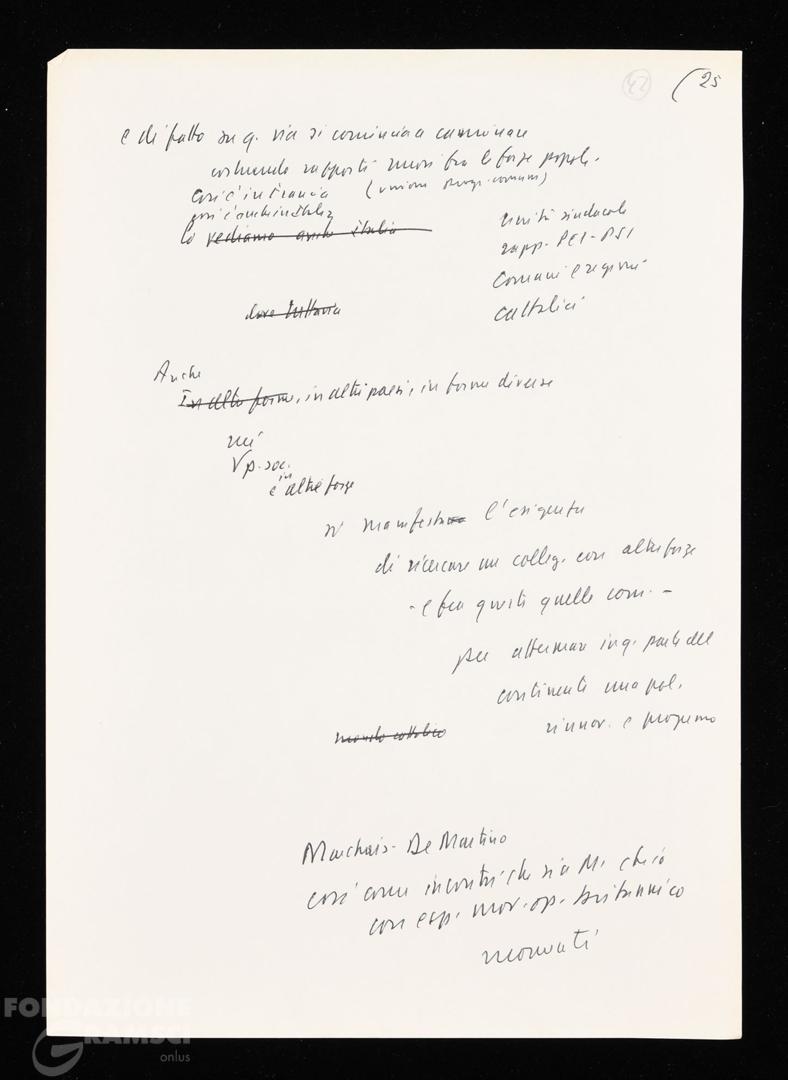 42 (25
e di fatto su q. via si comincia a camminare
costruendo rapporti nuovi fra le forze popol.
così è in Francia (unione progr. comuni)
così è anche in Italia
lo vediamo anche Italia
unità sindacale
rapp. PCI-PSI
Comuni e regioni
cattolici
dove tuttavia
Anche
In altre forme, in altri paesi, in forme diverse
nei
V p. soc.
e in altre forze
si manifesta l'esigenza
di ricercare un colleg. con altre forze
- e fra queste quelle com. -
per affermare in q. parte del
continente una pol.
rinnov. e progresso
mondo cattolico
Marchais - De Martino
così come incontri che sia M. che io
con esp. mov. op. britannico
FONDAZIONE
GRAMSCI
onlus